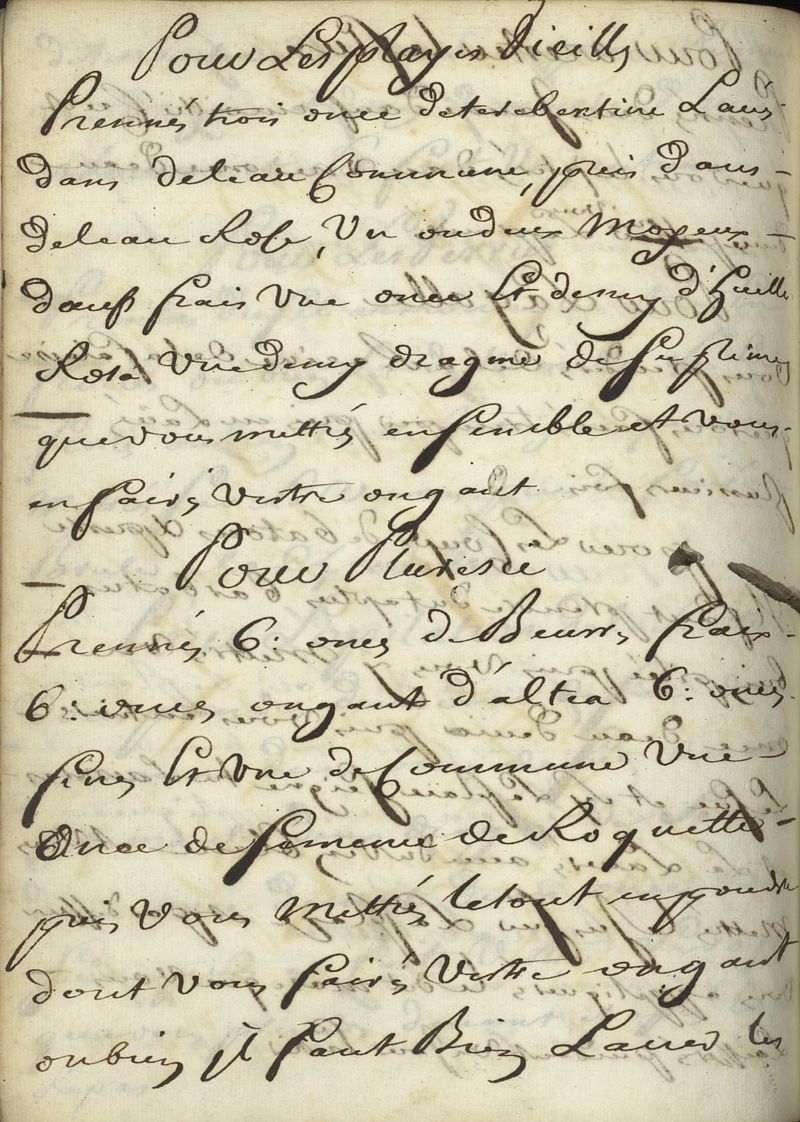 Pour Les playes Vieills
Prennés trois once deterebentine Laués
dans deleau Commune, puis dans
deleau Rose, Un ou deux Moyeux
dœufs frais Vne once Et demy d'huille
Rosa Vne demy dragme de
que vous mettrés ensemble et vous
en fairés Vostre ongant
Pour Pluresie
Prennés 6: onces de Beurre frais
6: onces ongant d'altea 6: onces
fines Et vne de Commune Vne
Once de semence de Roquette
puis Vous Mettrés letout en poudre
dont vous fairés Vostre ongant
oubien jl faut Bien Lauer les